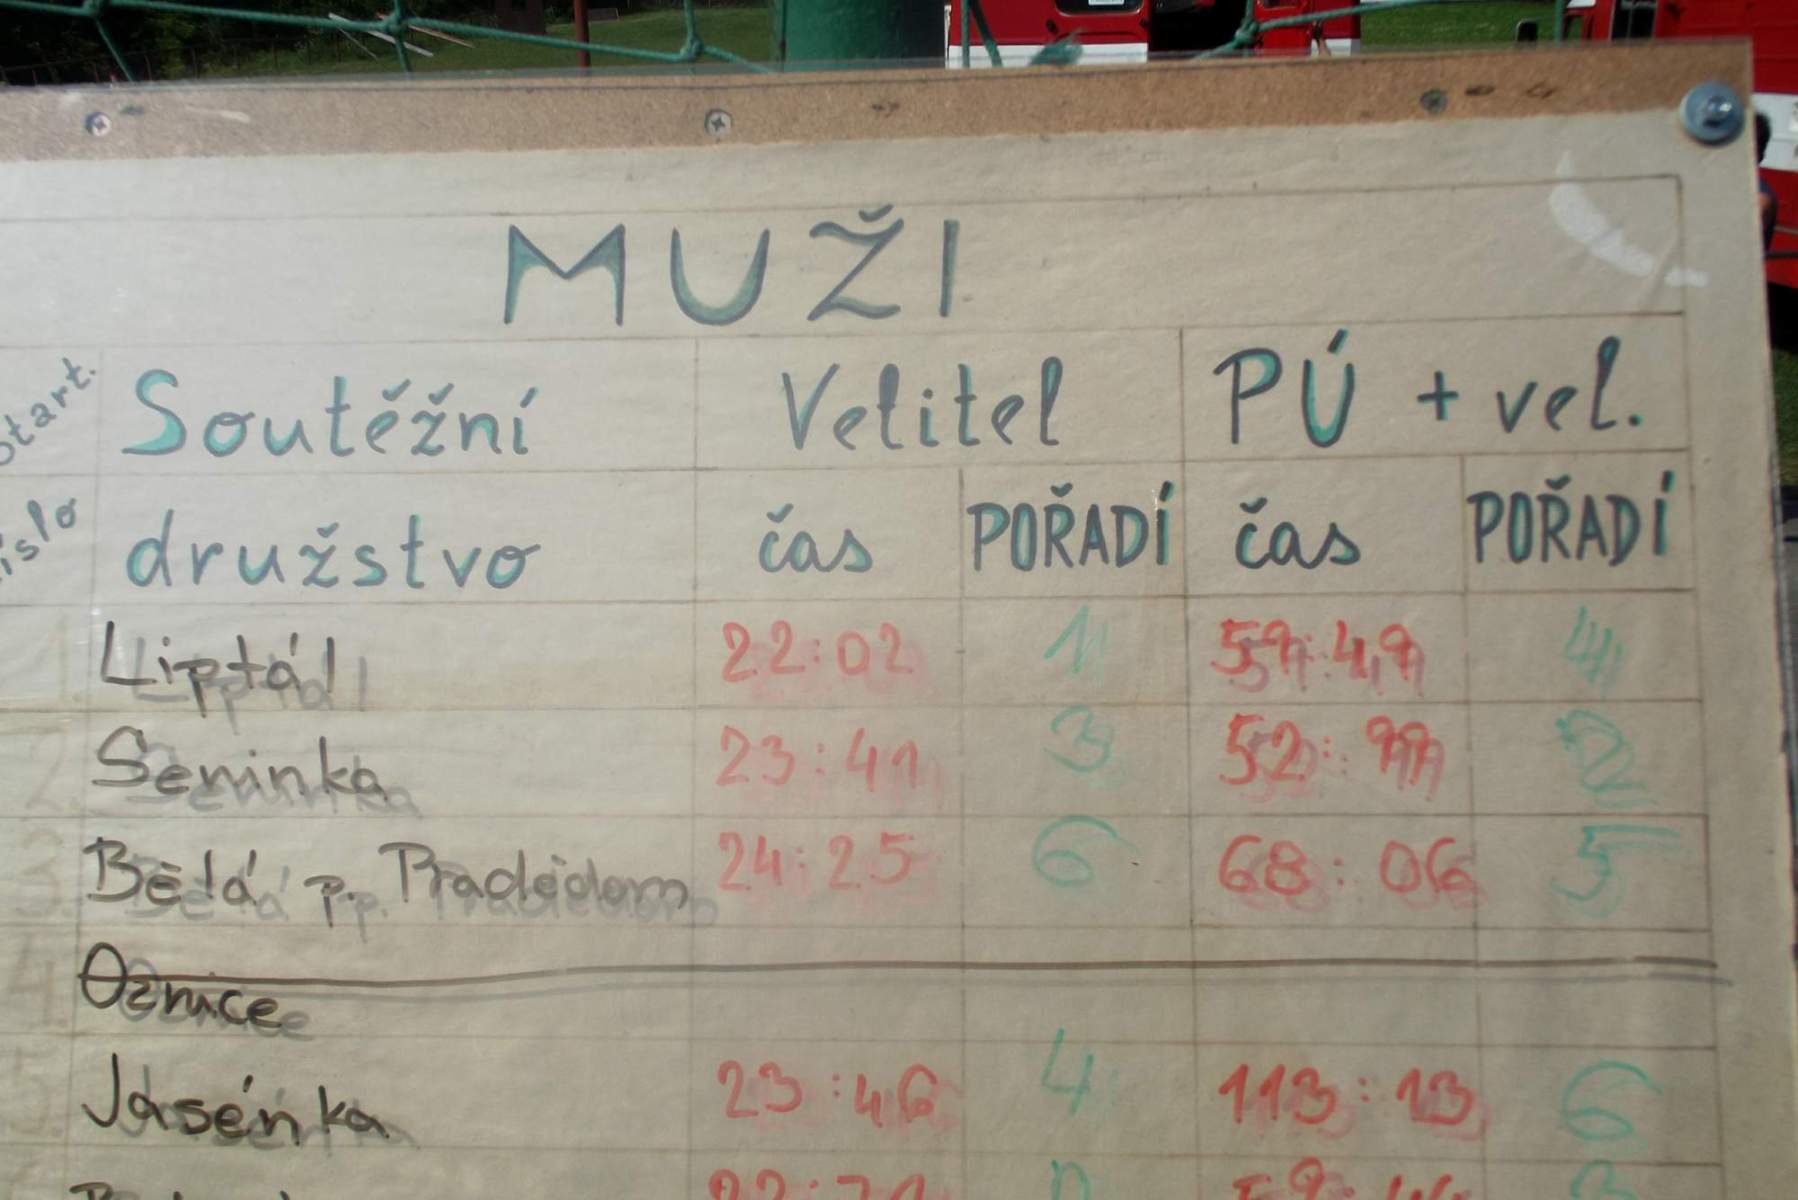 MUŽI
Start. Soutěžní Velitel PÚ + vel.
družstvo čas POŘADÍ čas POŘADÍ
1. Liptál 22:02 1 59:49 4
2. Seninka 23:41 3 52:99 2
3. Bělá p. Pradědem 24:25 6 68:06 5
4. Oznice
5. Jasénka 23:46 4 113:13 6